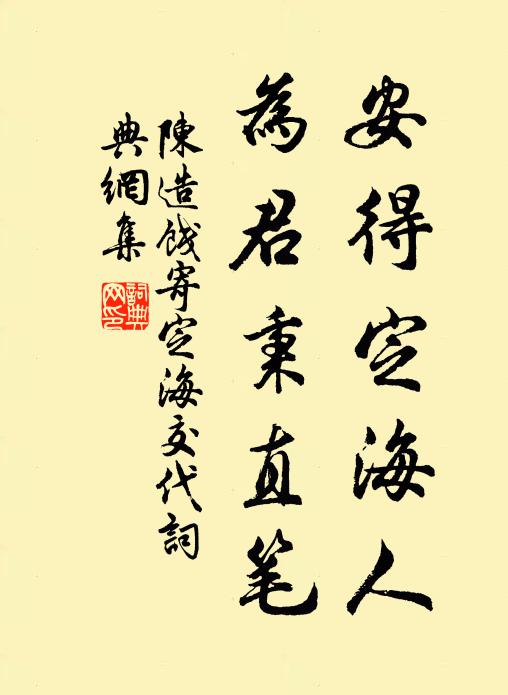 安得定海人
為君秉直笔
陳造餞寄定海交代詞
典網集
詞典
网印